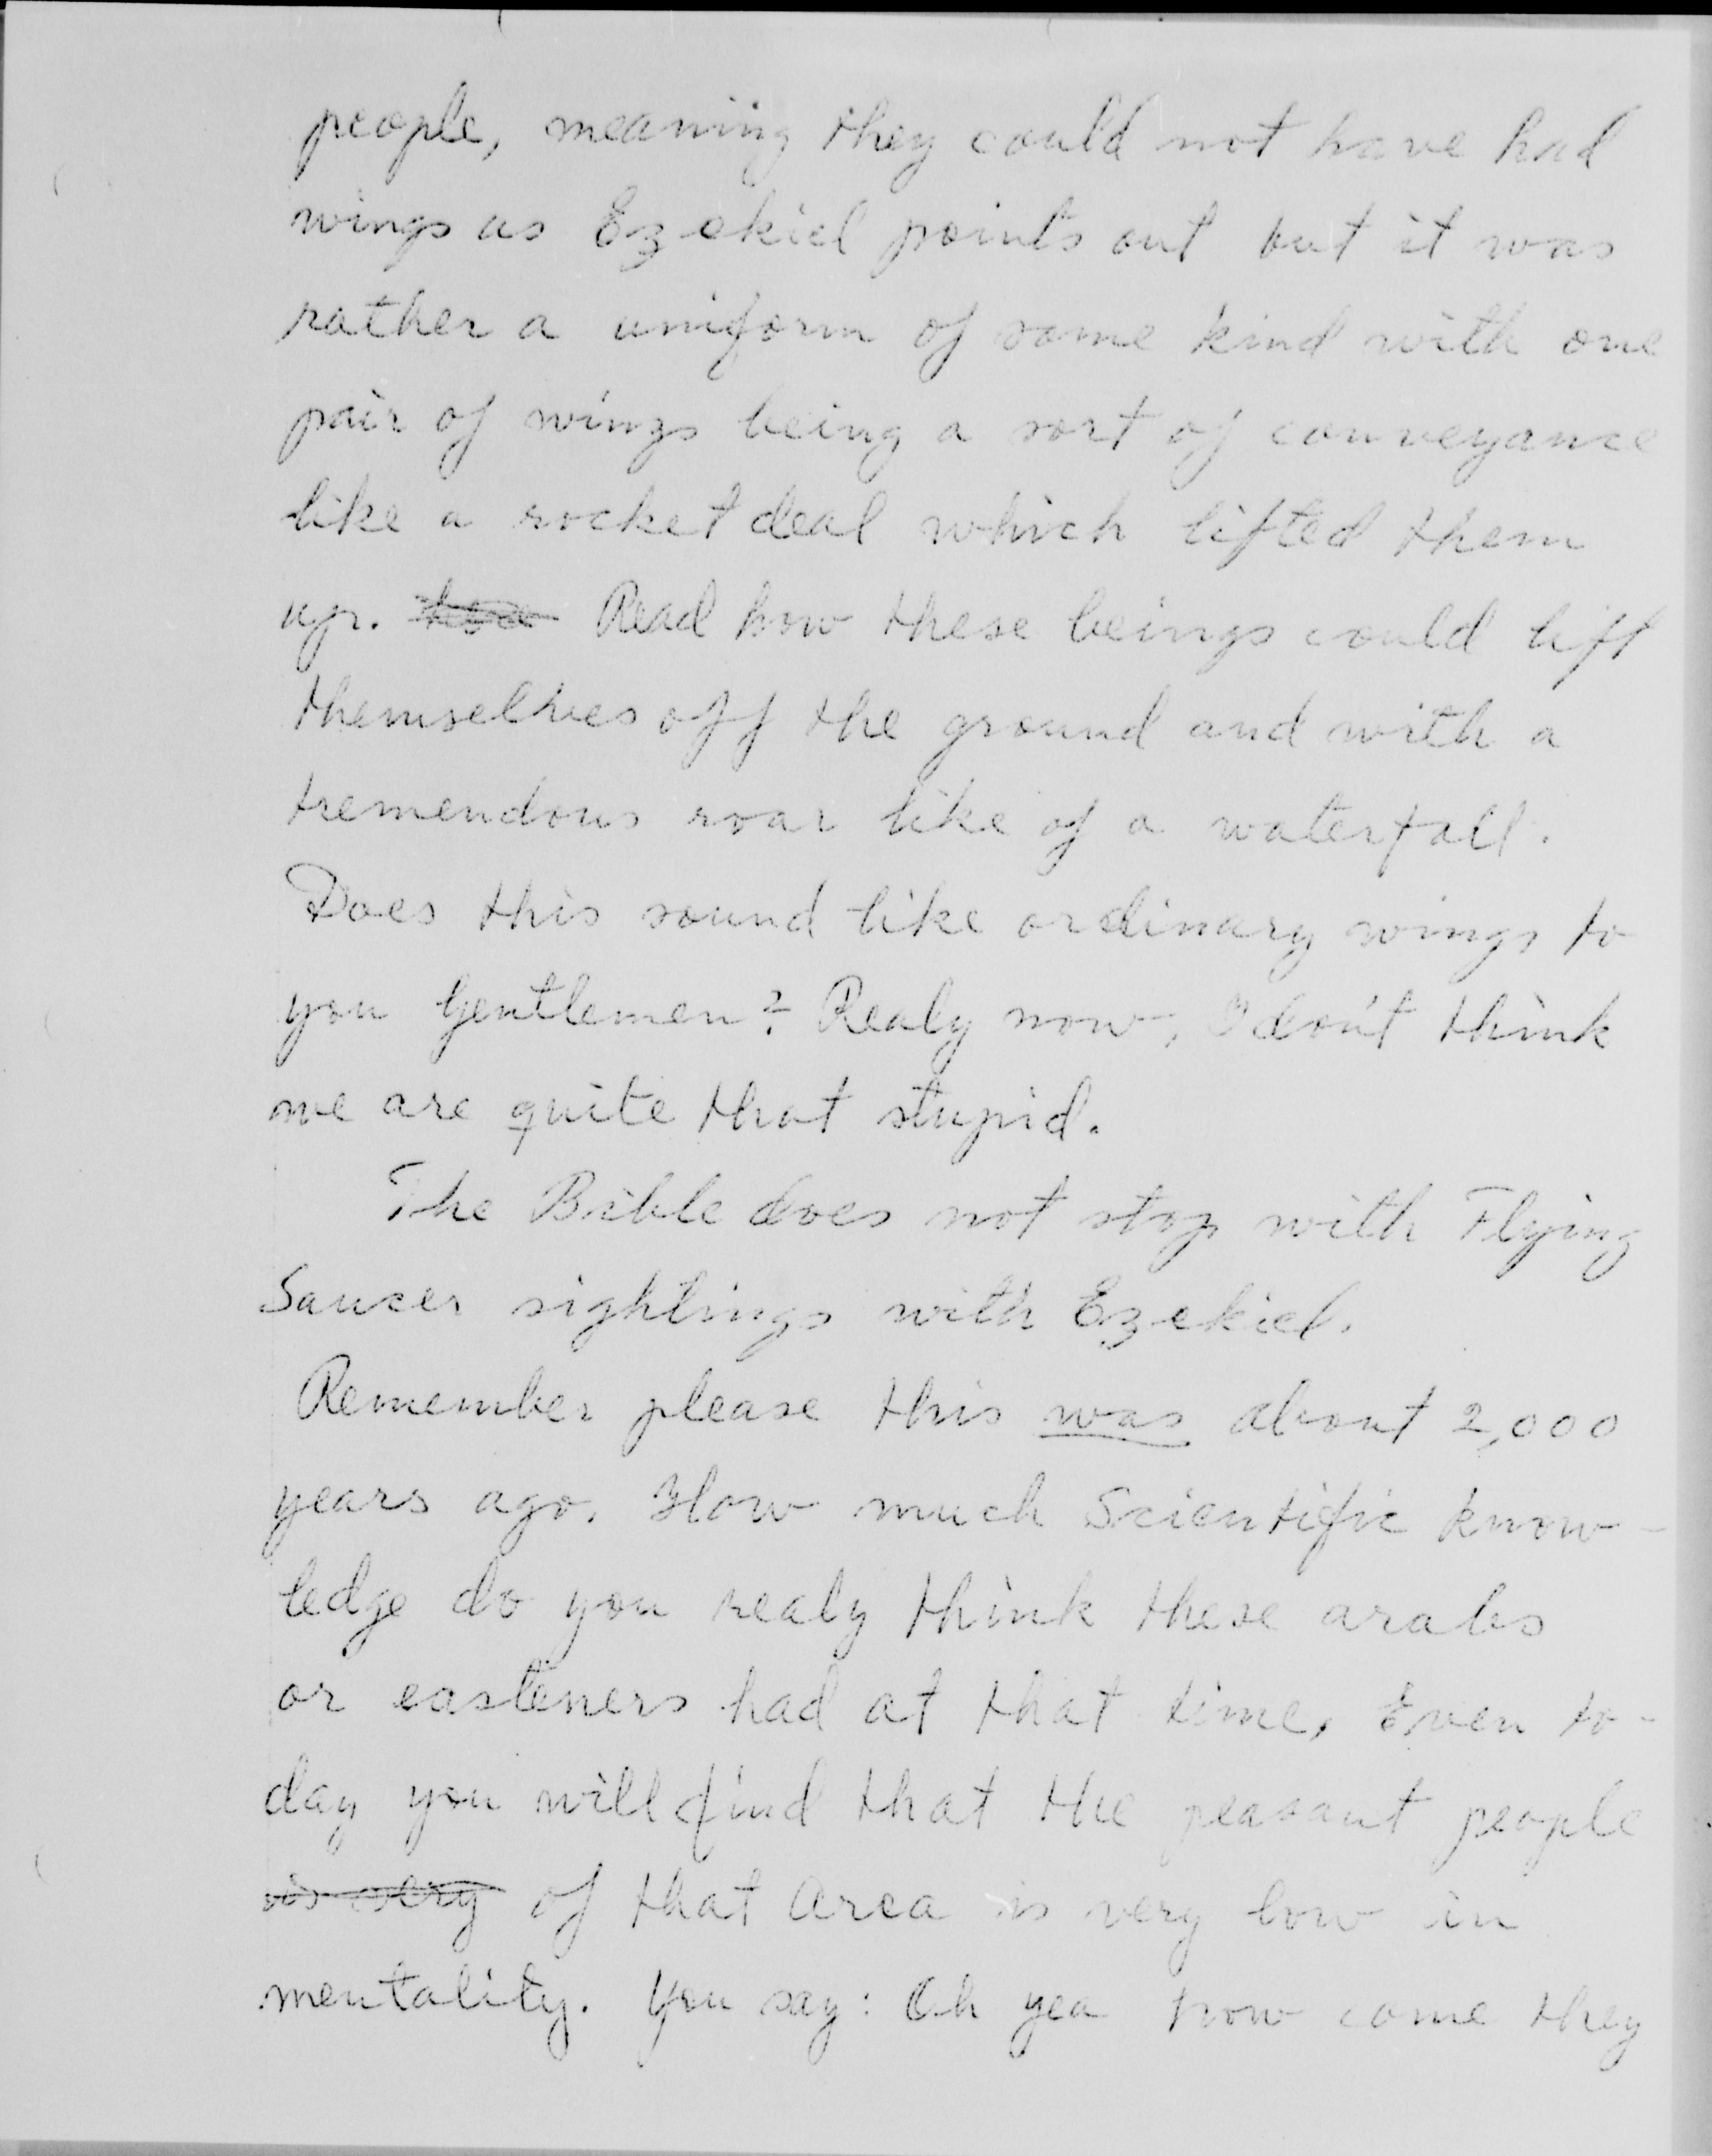 people, meaning they could not have had
wings as Ezekiel points out but it was
rather a uniform of some kind with one
pair of wings being a sort of conveyance
like a rocket deal which lifted them
up. Read how these beings could lift
themselves off the ground and with a
tremendous roar like of a waterfall.
Does this sound like ordinary wings to
you Gentlemen? Realy now, I don't think
we are quite that stupid.
The Bible does not stop with Flying
Saucer sightings with Ezekiel.
Remember please this was about 2,000
years ago. How much Scientific know-
ledge do you realy think these arabs
or easteners had at that time, Even to-
day you will find that the peasant people
is very of that Area is very low in
mentality. You say: Oh yea how come they